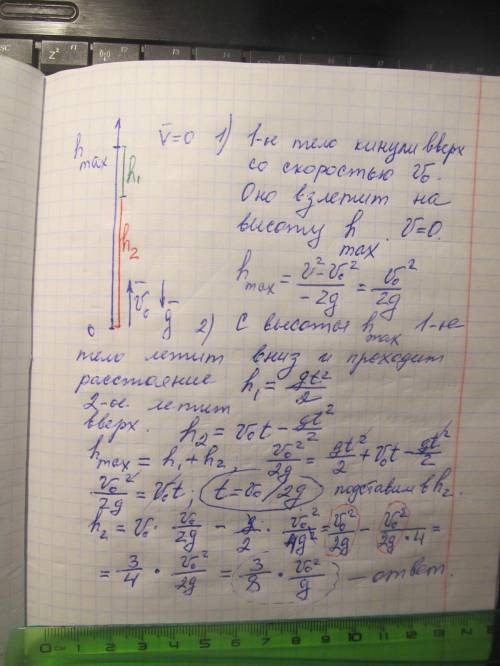 h max V̅=0 1) 1-е тело кинули вверх
со скоростью v₀.
h₁
Оно взлетит на
высоту h max. V=0.
h₂
h max = (v²-v₀²)/(-2g) = v₀²/2g
v̅₀ g̅
0 2) С высоты h max 1-ое
тело летит вниз и проходит
расстояние h₁ = gt²/2
2-ое летит
вверх. h₂ = v₀t - gt²/2
h max = h₁ + h₂, v₀²/2g = gt²/2 + v₀t - gt²/2
v₀²/2g = v₀t; t = v₀/2g подставим в h₂.
h₂ = v₀ · v₀/2g - g/2 · v₀²/4g² = v₀²/2g - v₀²/2g·4 =
= 3/4 · v₀²/2g = 3/8 · v₀²/g — ответ.
0 см 1 2 3 4 5 6 7 8 9 10 11 12 13 14 15